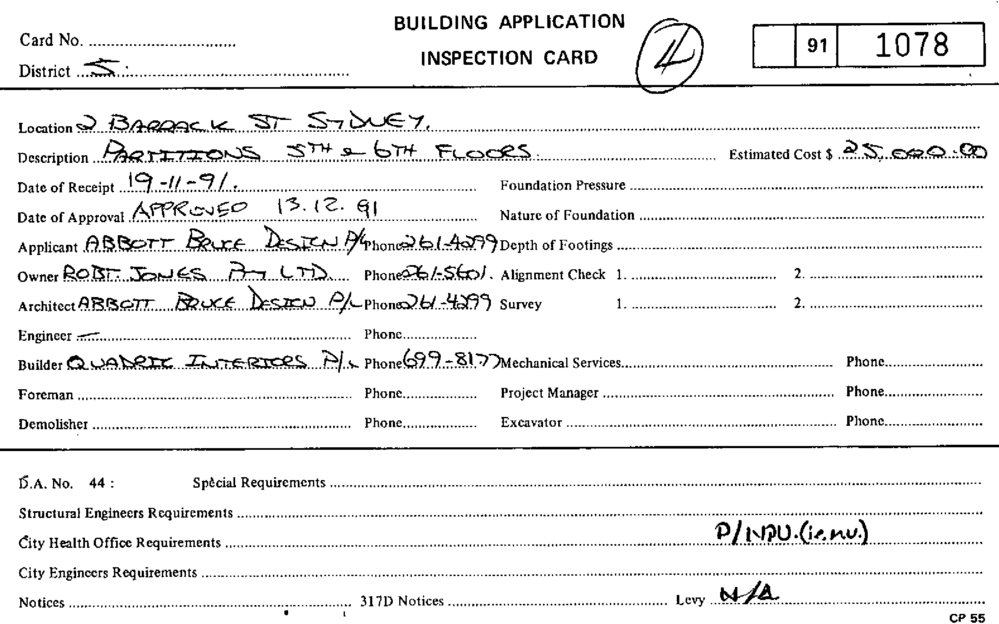 Card No.
BUILDING APPLICATION
INSPECTION CARD
91 1078
District S:
Location 2 BARRACK ST SYDNEY.
Description PARTITIONS 5TH & 6TH FLOORS. Estimated Cost $ 25,000.00
Date of Receipt 19-11-91. Foundation Pressure
Date of Approval APPROVED 13.12.91 Nature of Foundation
Applicant ABBOTT BRUCE DESIGN P/L Phone 261-4299 Depth of Footings
Owner ROBT. JONES Pty LTD Phone 261-5601. Alignment Check 1. 2.
Architect ABBOTT BRUCE DESIGN P/L Phone 261-4299 Survey 1. 2.
Engineer — Phone
Builder QUADRIC INTERIORS P/L Phone 699-8177 Mechanical Services Phone
Foreman Phone Project Manager Phone
Demolisher Phone Excavator Phone
D.A. No. 44 : Special Requirements
Structural Engineers Requirements
City Health Office Requirements P/NPU.(i.e.nv.)
City Engineers Requirements
Notices 317D Notices Levy N/A
CP 55